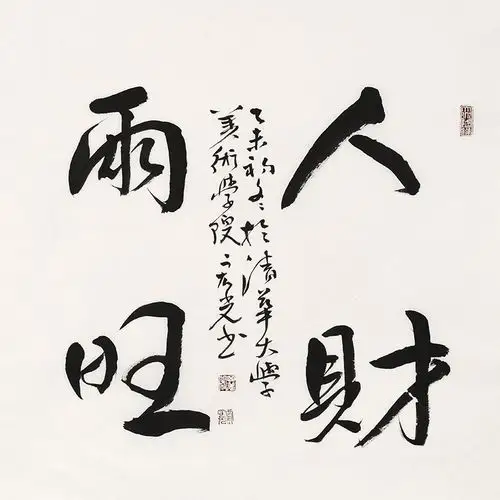 人財
兩旺
乙未初冬於清華大學
美術學院 光書